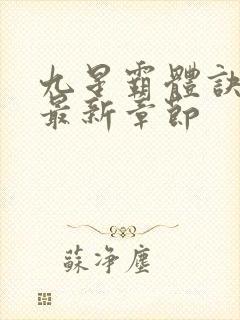 九星霸體訣
最新章節
蘇淨塵